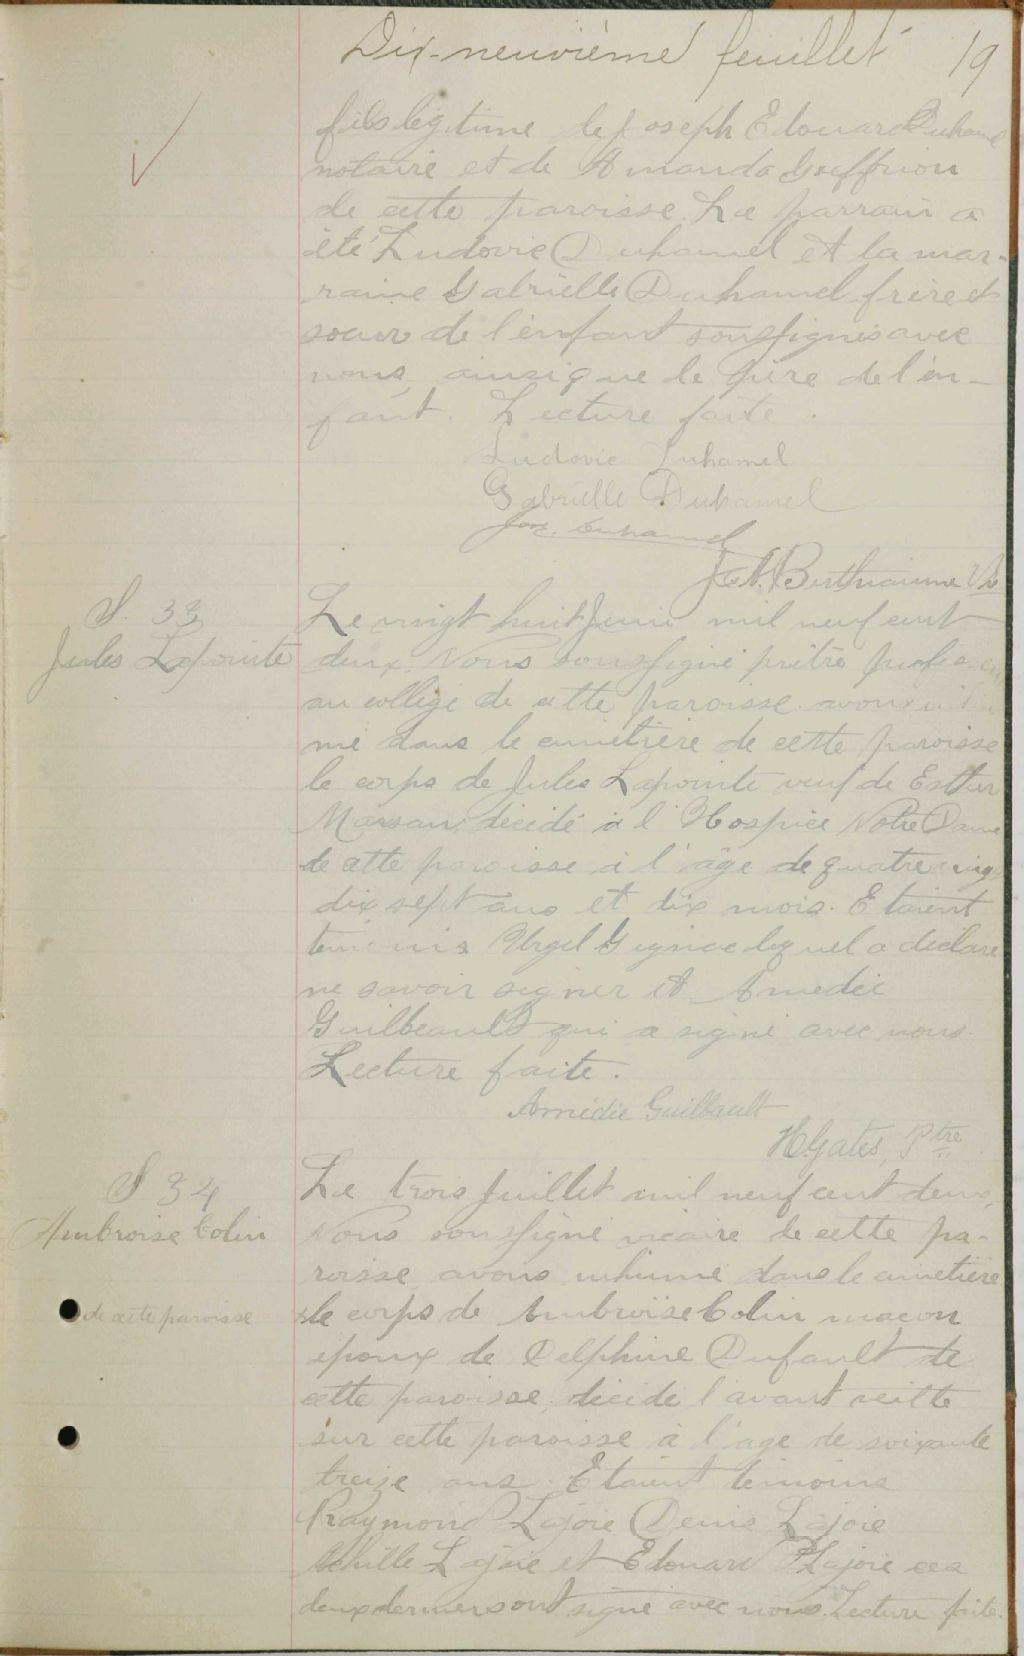 Dix-neuvième feuillet 19
fils légitime de Joseph Edouard Duhamel
notaire et de Amanda Geoffrion
de cette paroisse. Le parrain a
été Ludovic Duhamel et la mar-
raine Gabrielle Duhamel frère et
soeur de l'enfant soussignés avec
nous, ainsi que le père de l'en-
fant. Lecture faite.
Ludovic Duhamel
Gabrielle Duhamel
Jos. E. Duhamel
Berthiaume
S. 33
Jules Lapointe
Le vingt huit Juin mil neuf cent
deux, Nous soussigné prêtre professeur
au collège de cette paroisse avons inhu
mé dans le cimetière de cette paroisse
le corps de Jules Lapointe veuf de Esther
Marsan, décidé à l'Hospice Notre Dame
de cette paroisse à l'âge de quatre vingt
dix sept ans et dix mois. Etaient
témoins Urgel Gignac lequel a déclaré
ne savoir signer et Amédée
Guilbeault qui a signé avec nous.
Lecture faite.
Amédée Guilbault
H. Gates, Ptre
S 34
Ambroise Colin
Le trois Juillet mil neuf cent deux,
Nous soussigné vicaire de cette pa-
roisse avons inhumé dans le cimetière
x de cette paroisse
x le corps de Ambroise Colin maçon
époux de Delphine Dufault de
cette paroisse, décidé l'avant veille
sur cette paroisse à l'âge de soixante
treize ans. Etaient témoins
Raymond Lajoie Denis Lajoie
Achille Lajoie et Edouard Lajoie ces
deux derniers ont signé avec nous. Lecture faite.